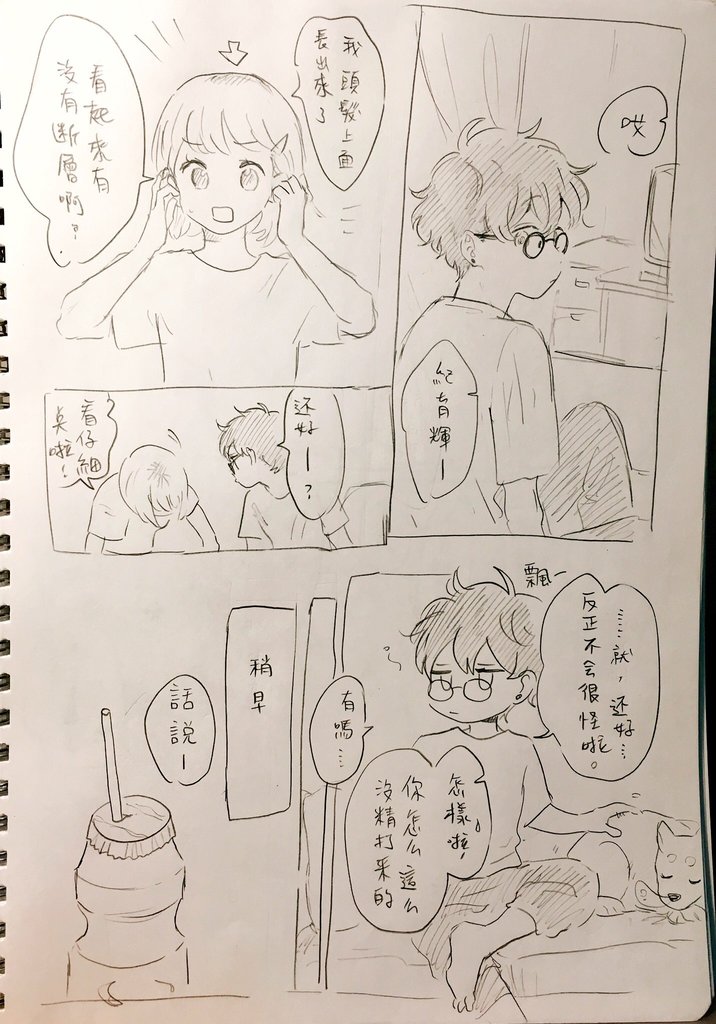 哎
紀有輝ー
我頭髮上面
長出來了
看起來有
沒有断層啊？
还好ー？
看仔細
点啦！
飄ー
……就，还好…
反正不会很怪啦。
有嗎……
怎樣啦，
你怎么這么
沒精打采的
稍早
話說ー